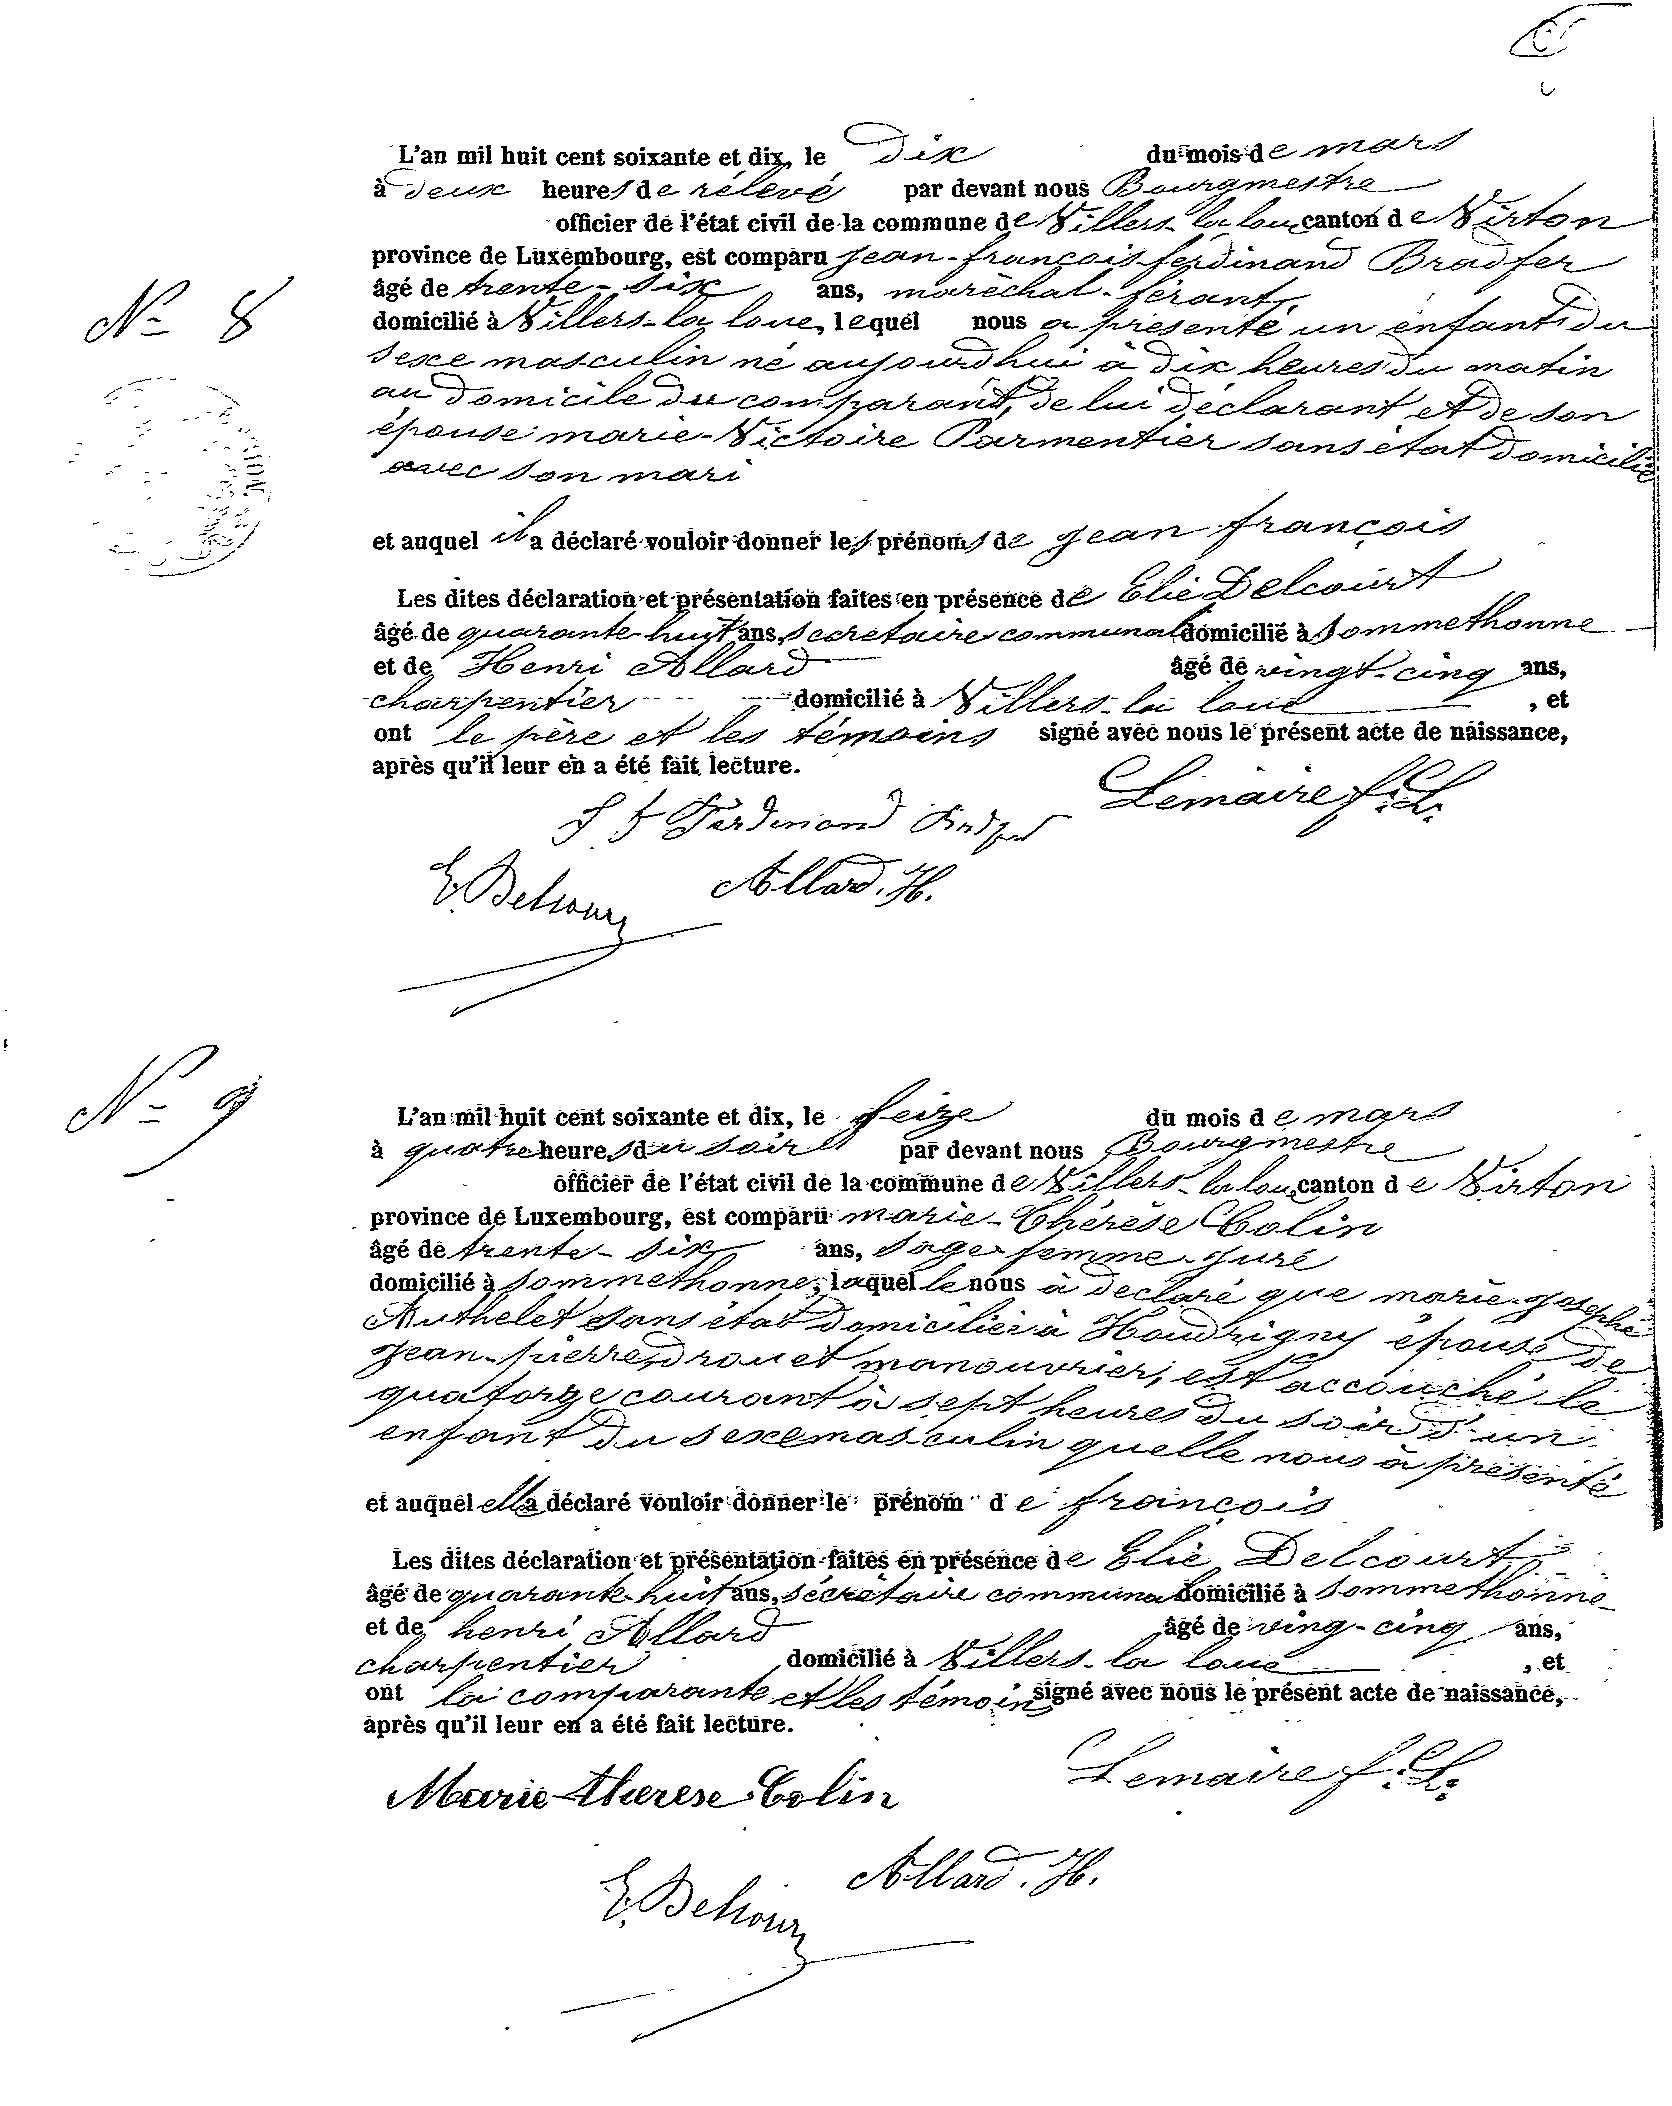 L'an mil huit cent soixante et dix, le dix du mois de mars
à deux heures de rélevé par devant nous Bourgmestre
officier de l'état civil de la commune de Villers-la loue canton de Virton
province de Luxembourg, est comparu jean-françois-ferdinand Bradfer
N° 8
âgé de trente-six ans, maréchal-férant,
domicilié à Villers-la loue, lequel nous a présenté un enfant du
sexe masculin né aujourdhui à dix heures du matin
au domicile du comparant, de lui déclarant et de son
épouse marie-Victoire Parmentier sans état domicilié
avec son mari
et auquel il a déclaré vouloir donner les prénoms de jean françois
Les dites déclaration et présentation faites en présence de Elie Delcourt
âgé de quarante-huit ans, secrétaire communal domicilié à Sommethonne
et de Henri Allard âgé de vingt-cinq ans,
charpentier domicilié à Villers-la loue , et
ont le père et les témoins signé avec nous le présent acte de naissance,
après qu'il leur en a été fait lecture.
Lemaire f. L.
J f Ferdinand Bradfer
E. Delcourt Allard. H.
N° 9
L'an mil huit cent soixante et dix, le seize du mois de mars
à quatre heures du soir par devant nous Bourgmestre
officier de l'état civil de la commune de Villers-la loue canton de Virton
province de Luxembourg, est comparu marie-Thérèse Colin
âgé de trente-six ans, sage-femme-juré
domicilié à Sommethonne, laquelle nous à declaré que marie-josephe
Authelet sans état domiciliée à Houdrigny épouse de
jean-pierre drouet manouvrier, est accouché le
quatorze courant à sept heures du soir d'un
enfant du sexe masculin quelle nous à présenté
et auquel elle a déclaré vouloir donner le prénom de françois
Les dites déclaration et présentation faites en présence de Elie Delcourt
âgé de quarante-huit ans, sécrétaire communal domicilié à Sommethonne
et de henri Allard âgé de ving-cinq ans,
charpentier domicilié à Villers-la loue , et
ont la comparante et les témoins signé avec nous le présent acte de naissance,
après qu'il leur en a été fait lecture.
Marie-therese Colin Lemaire f. L.
E. Delcourt Allard. H.